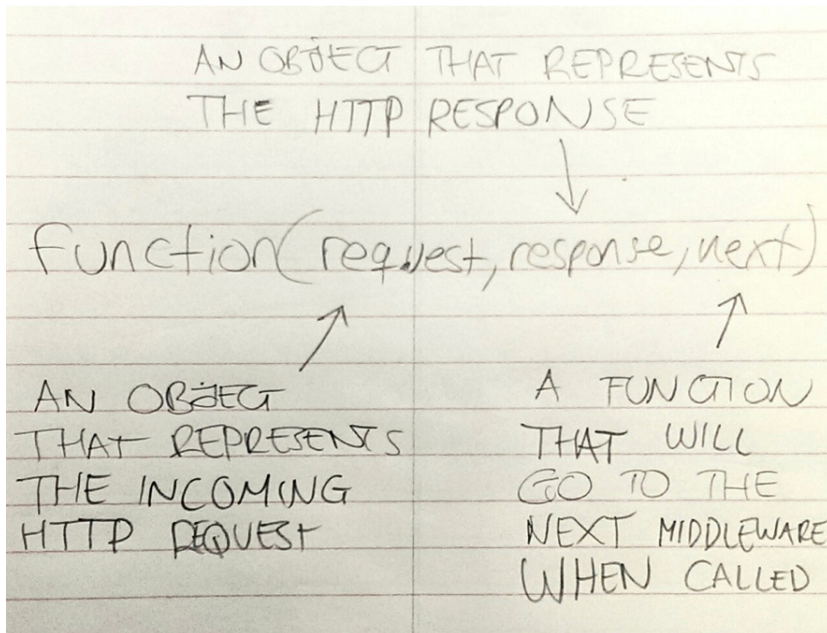 AN OBJECT THAT REPRESENTS
THE HTTP RESPONSE
function(request, response, next)
AN OBJECT
THAT REPRESENTS
THE INCOMING
HTTP REQUEST
A FUNCTION
THAT WILL
GO TO THE
NEXT MIDDLEWARE
WHEN CALLED